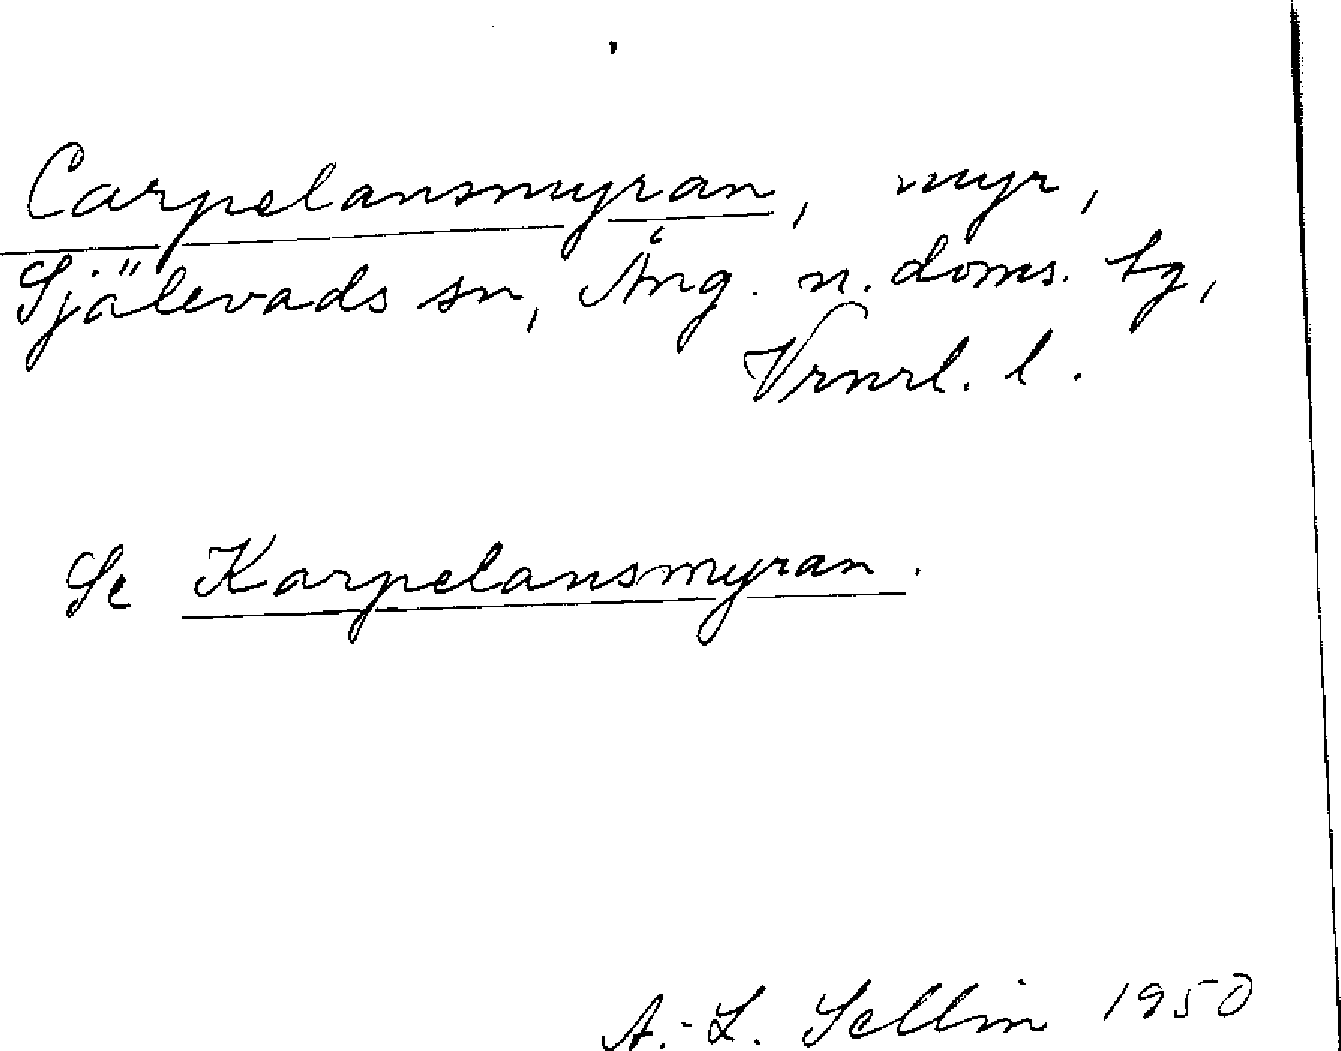 Carpelansmyran, myr,
Själevads sn, Ång. n. doms. tg,
Vrnrl. l.
Se Karpelansmyran.
A.-L. Sellin 1950